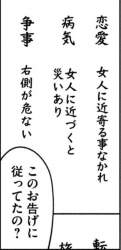 恋愛　女人に近寄る事なかれ
病気　女人に近づくと
災いあり
争事　右側が危ない
転
旅
このお告げに
従ってたの？